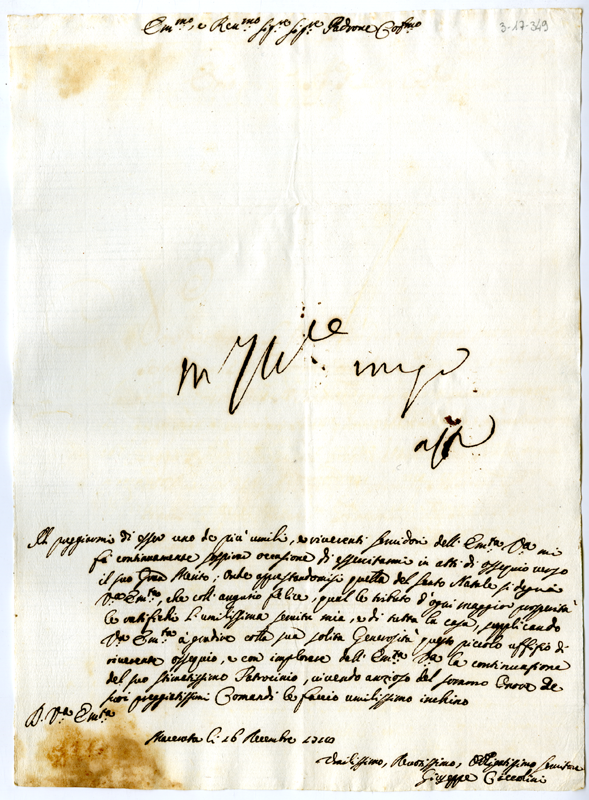 3-17-349
Em.mo, e Reu.mo Sig.re Sig.re Padrone Col.mo
m Ill.re
Il preggiarmi di esser uno de più umili, e riverenti Servidori dell' Em.za V.ra mi
fà continuamente occasione di essercitarmi in atti di ossequio verso
il suo Gran Merito; Onde appressandomisi quella del Santo Natale si degnerà
V.ra Em.za, che coll' augurio felice, qual le tributo d'ogni maggior prosperità
le ratifichi l' umilissima servitù mia, e di tutta la casa, supplicando
V.ra Em.za à gradire colla sua solita Generosità questo piccolo uffizio di
riverente ossequio, e con implorare dell' Em.za V.ra la continuazione
del suo stimatissimo Patrocinio, vivendo anzioso del sommo Onore de
suoi preggiatissimi Comandi le faccio umilissimo inchino
D. V.ra Em.za
Macerata li 16 Decembre
Umilissimo, Devotissimo, Obligatissimo Servitore
Giuseppe